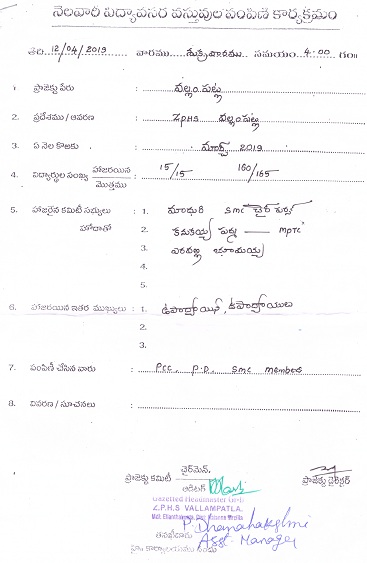 నెలవారీ విద్యావసర వస్తువుల పంపిణీ కార్యక్రమం
తేది. 12/04/2019 వారము..... శుక్రవారము.. సమయం. 4.00 గం॥
1. ప్రాజెక్టు పేరు : వల్లంపట్ల
2. ప్రదేశము / ఆవరణ : ZPHS వల్లంపట్ల
3. ఏ నెల కొఱకు : మార్చి 2019
4. విద్యార్థుల సంఖ్య హాజరయిన/మొత్తము : 15/15 160/165
5. హాజరైన కమిటీ సభ్యులు : 1. మాధురి SMC చైర్ పర్సన్
హోదాతో 2. కనకయ్య శర్మ — MPTC
3. భూమయ్య
4.
5.
6. హాజరయిన ఇతర ముఖ్యులు : 1. ఉపాధ్యాయిని, ఉపాధ్యాయులు
2.
3.
7. పంపిణీ చేసిన వారు : PCC, P.D, SMC members
8. వివరణ / సూచనలు :
చైర్‌మెన్,
ప్రాజెక్టు కమిటీ ఆడిటర్ ప్రాజెక్టు డైరెక్టర్
Gazetted Headmaster Gr-II
Z.P.H.S VALLAMPATLA,
P. Dhanalakshmi
తనిఖీదారు Asst. Manager